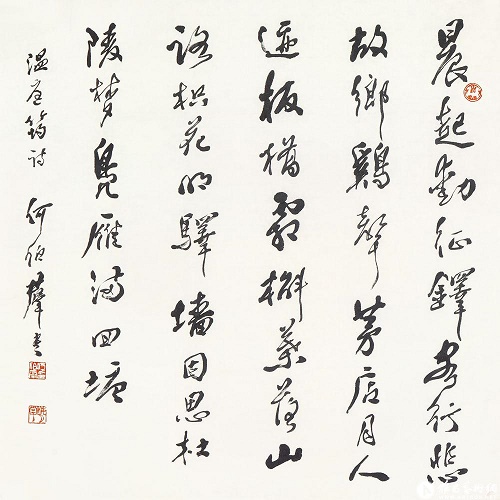 晨起動征鐸客行悲
故鄉鷄聲茅店月人
迹板橋霜槲葉落山
路枳花明驛墻因思杜
陵夢鳧雁滿回塘
溫庭筠詩 何伯羣書